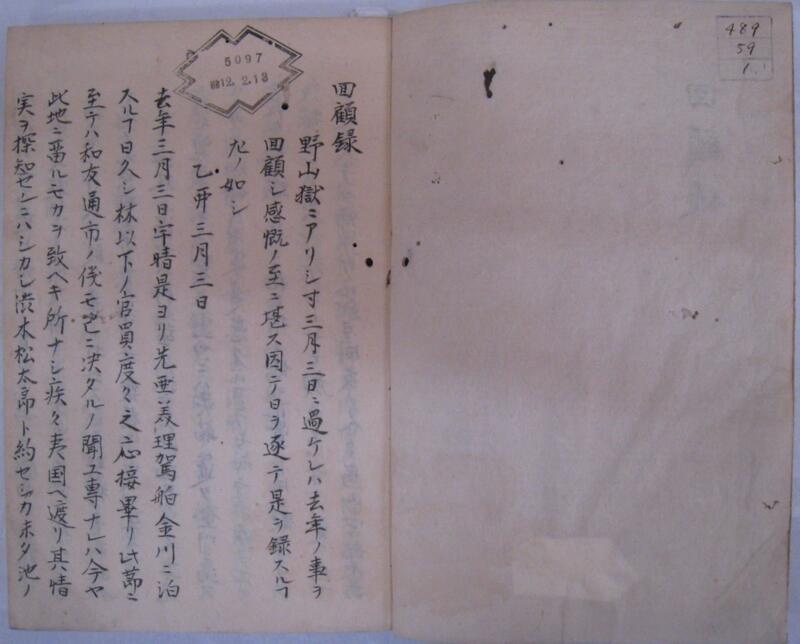 489
59
1
5097
昭12.2.13
回顧録
野山獄ニアリシ寸三月三日ニ過ケレハ去年ノ事ヲ
回顧シ感慨ノ至ニ堪ス因テ日ヲ逐テ是ヲ録スルヿ
左ノ如シ
乙卯三月三日
去年三月三日宇晴是ヨリ先亜美理駕舶金川ニ泊
スルヿ日久シ林以下ノ官員度々之ニ応接畢リ此節ニ
至テハ和友通市ノ儀モ已ニ決タルノ聞エ専ナレハ今ヤ
此地ニ留ルモ力ヲ致ヘキ所ナシ疾々夷国ヘ渡リ其情
実ヲ探知センニハシカシ渋木松太郎ト約セシカ未タ池ノ